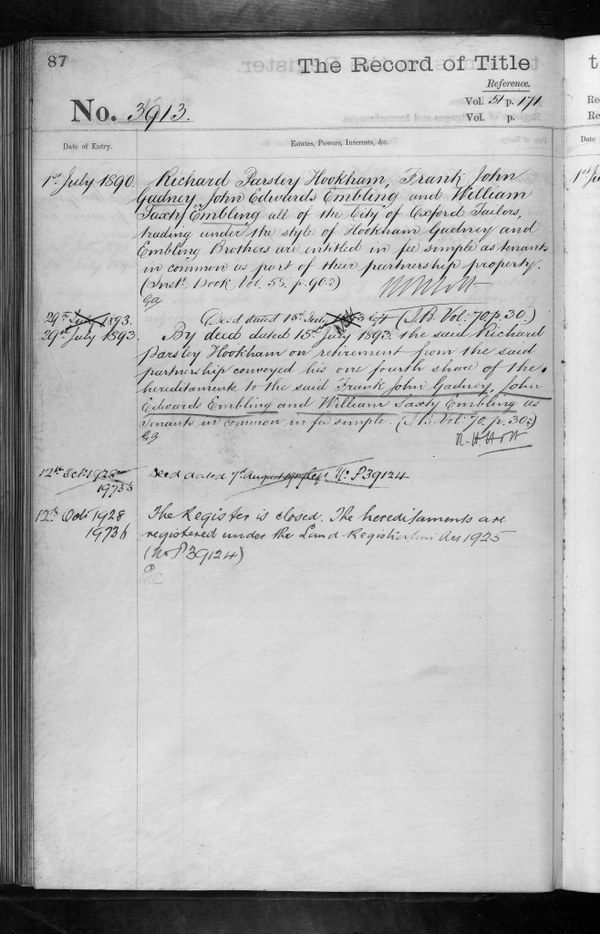 87
The Record of Title
Reference.
No. 3913.
Vol. 51 p. 171
Vol. p.
Date of Entry.
Estates, Powers, Interests, &c.
1st July 1890. Richard Parsley Hookham, Frank John
Gadney, John Edwards Embling and William
Saxty Embling all of the City of Oxford Tailors,
trading under the style of Hookham Gadney and
Embling Brothers are entitled in fee simple as tenants
in common as part of their partnership property.
(Inst. Book, Vol. 55. p. 90.)
29th July 1893. Deed dated 15th July (I.B. Vol: 70, p. 30.)
29th July 1893. By deed dated 15th July 1893. the said Richard
Parsley Hookham on retirement from the said
partnership conveyed his one fourth share of the
hereditaments to the said Frank John Gadney, John
Edwards Embling and William Saxty Embling as
tenants in common in fee simple. (I.B. Vol: 70. p. 30.)
12th Oct. 1928 Deed dated 7th August No P39124
1973b
12th Oct 1928 The Register is closed. The hereditaments are
1973b registered under the Land Registration Act 1925
(No P39124)